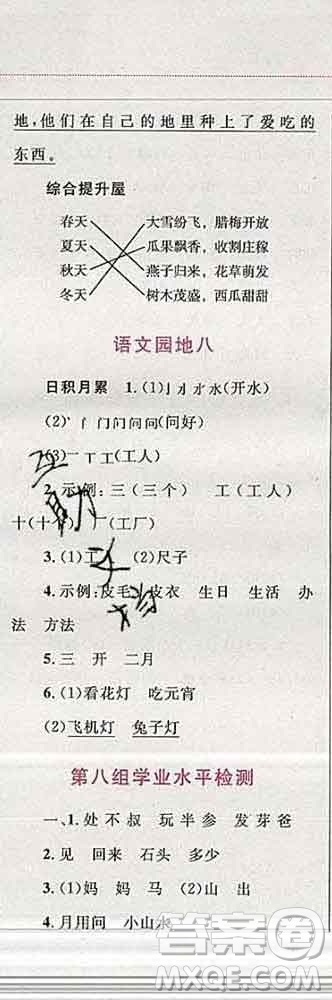 地,他们在自己的地里种上了爱吃的
东西。
综合提升屋
春天 大雪纷飞，腊梅开放
夏天 瓜果飘香，收割庄稼
秋天 燕子归来，花草萌发
冬天 树木茂盛，西瓜甜甜
语文园地八
日积月累 1.(1)亅 水(开水)
(2)丶 门门问问(问好)
(3)一 丅 工(工人)
2.示例:三(三个) 工(工人)
十(十个) 厂(工厂)
3.(1)工 (2)尺子
4.示例:皮毛 皮衣 生日 生活 办
法 方法
5.三 开 二月
6.(1)看花灯 吃元宵
(2)飞机灯 兔子灯
第八组学业水平检测
一、1.处不叔 玩半参 发芽爸
2.见 回来 石头 多少
3.(1)妈 妈 马 (2)山 出
4.月用问 小山水
答案圈
MXQE.COM